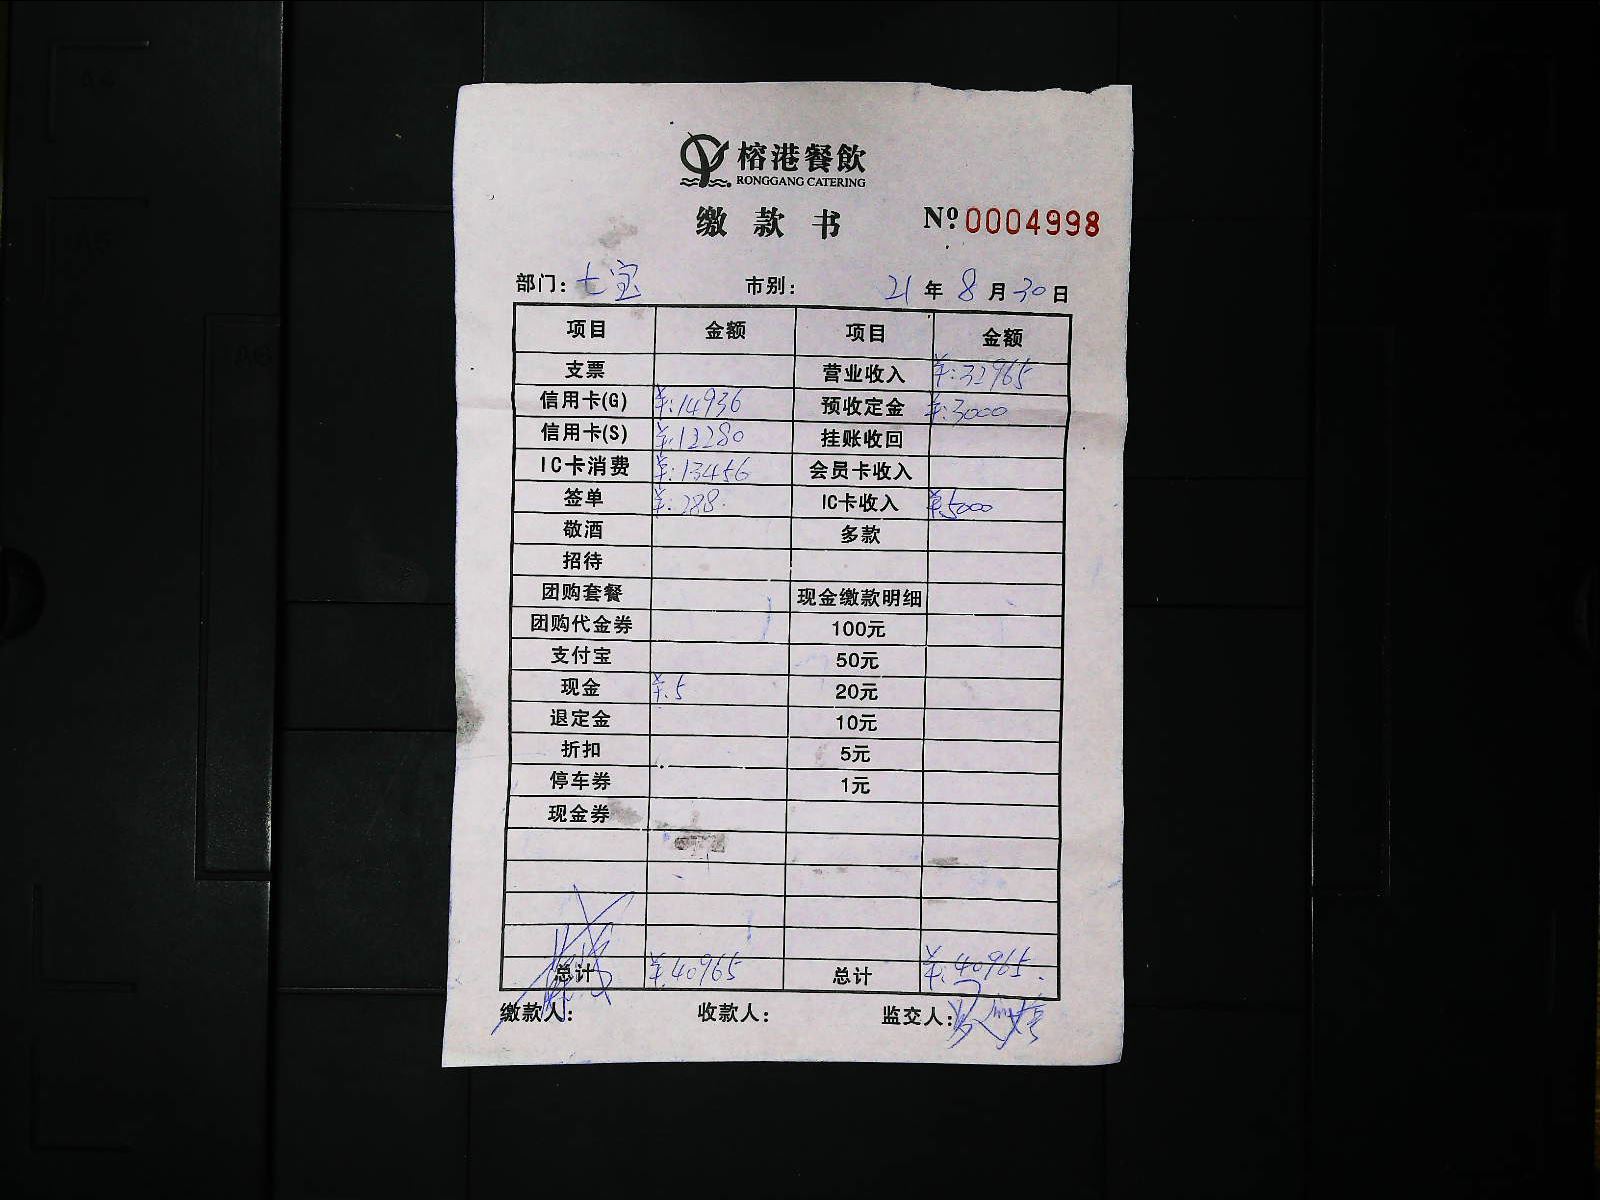 榕港餐飲
RONGGANG CATERING
缴款书 Nº.0004998
部门：七宝 市别： 21年8月30日
项目 金额 项目 金额
支票 营业收入 ¥:32965
信用卡(G) ¥:14936 预收定金 ¥:3000
信用卡(S) ¥:12280 挂账收回
IC卡消费 ¥:13456 会员卡收入
签单 ¥:288 IC卡收入 ¥:5000
敬酒 多款
招待
团购套餐 现金缴款明细
团购代金券 100元
支付宝 50元
现金 ¥:5 20元
退定金 10元
折扣 5元
停车券 1元
现金券
总计 ¥:40965 总计 ¥:40965
缴款人： 收款人： 监交人：